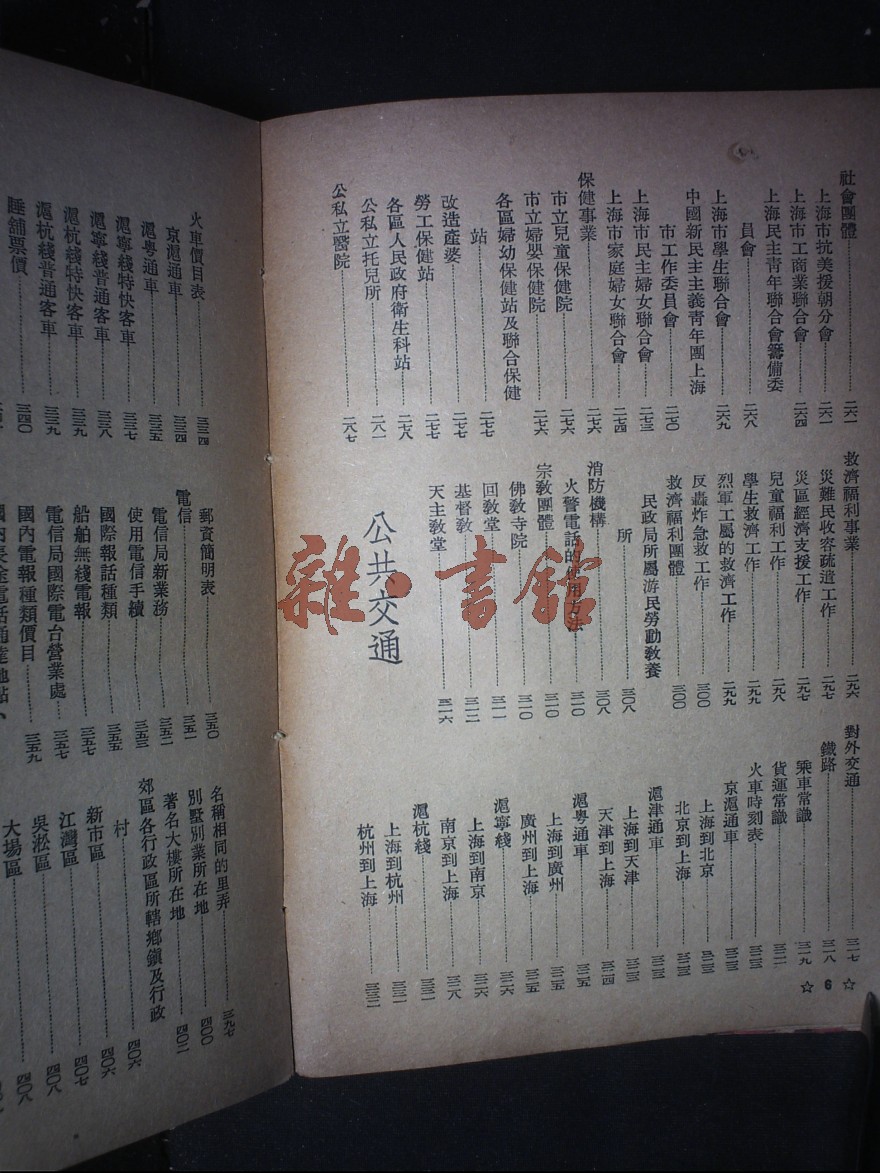 社會團體……二六一
上海市抗美援朝分會……二六一
上海市工商業聯合會……二六四
上海民主青年聯合會籌備委
員會……二六八
上海市學生聯合會……二六九
中國新民主主義青年團上海
市工作委員會……二七〇
上海市民主婦女聯合會……二七三
上海市家庭婦女聯合會……二七四
保健事業……二七六
市立兒童保健院……二七六
市立婦嬰保健院……二七六
各區婦幼保健站及聯合保健
站……二七七
改造產婆……二七七
勞工保健站……二七七
各區人民政府衛生科站……二七八
公私立托兒所……二八一
公私立醫院……二八七
救濟福利事業……二九六
災難民收容疏遣工作……二九七
災區經濟支援工作……二九七
兒童福利工作……二九九
學生救濟工作……二九九
烈軍工屬的救濟工作……二九九
反轟炸急救工作……三〇〇
救濟福利團體……三〇〇
民政局所屬游民勞動教養
所……三〇八
消防機構……三〇八
火警電話的使用方法……三一〇
宗教團體……三一〇
佛教寺院……三一〇
回教堂……三一一
基督教……三一二
天主教堂……三一六
公共交通
對外交通……三一七
鐵路……三一八
乘車常識……三一九
貨運常識……三二一
火車時刻表……三二三
京滬通車……三二三
上海到北京……三二三
北京到上海……三二三
滬津通車……三二三
上海到天津……三二三
天津到上海……三二四
滬粵通車……三二五
上海到廣州……三二五
廣州到上海……三二五
滬寧綫……三二六
上海到南京……三二六
南京到上海……三二八
滬杭綫……三三一
上海到杭州……三三一
杭州到上海……三三二
☆ 6 ☆
火車價目表……三三四
京滬通車……三三四
滬粵通車……三三五
滬寧綫特快客車……三三七
滬寧綫普通客車……三三八
滬杭綫特快客車……三三九
滬杭綫普通客車……三三九
睡舖票價……三四〇
郵資簡明表……三五〇
電信……三五一
電信局新業務……三五二
使用電信手續……三五三
國際報話種類……三五五
船舶無綫電報……三五七
電信局國際電台營業處……三五七
國內電報種類價目……三五九
國內長途電話通達地點、
名稱相同的里弄……三九七
別墅別業所在地……四〇〇
著名大樓所在地……四〇二
郊區各行政區所轄鄉鎮及行政
村……四〇六
新市區……四〇六
江灣區……四〇七
吳淞區……四〇八
大場區……四〇八
雜·書館